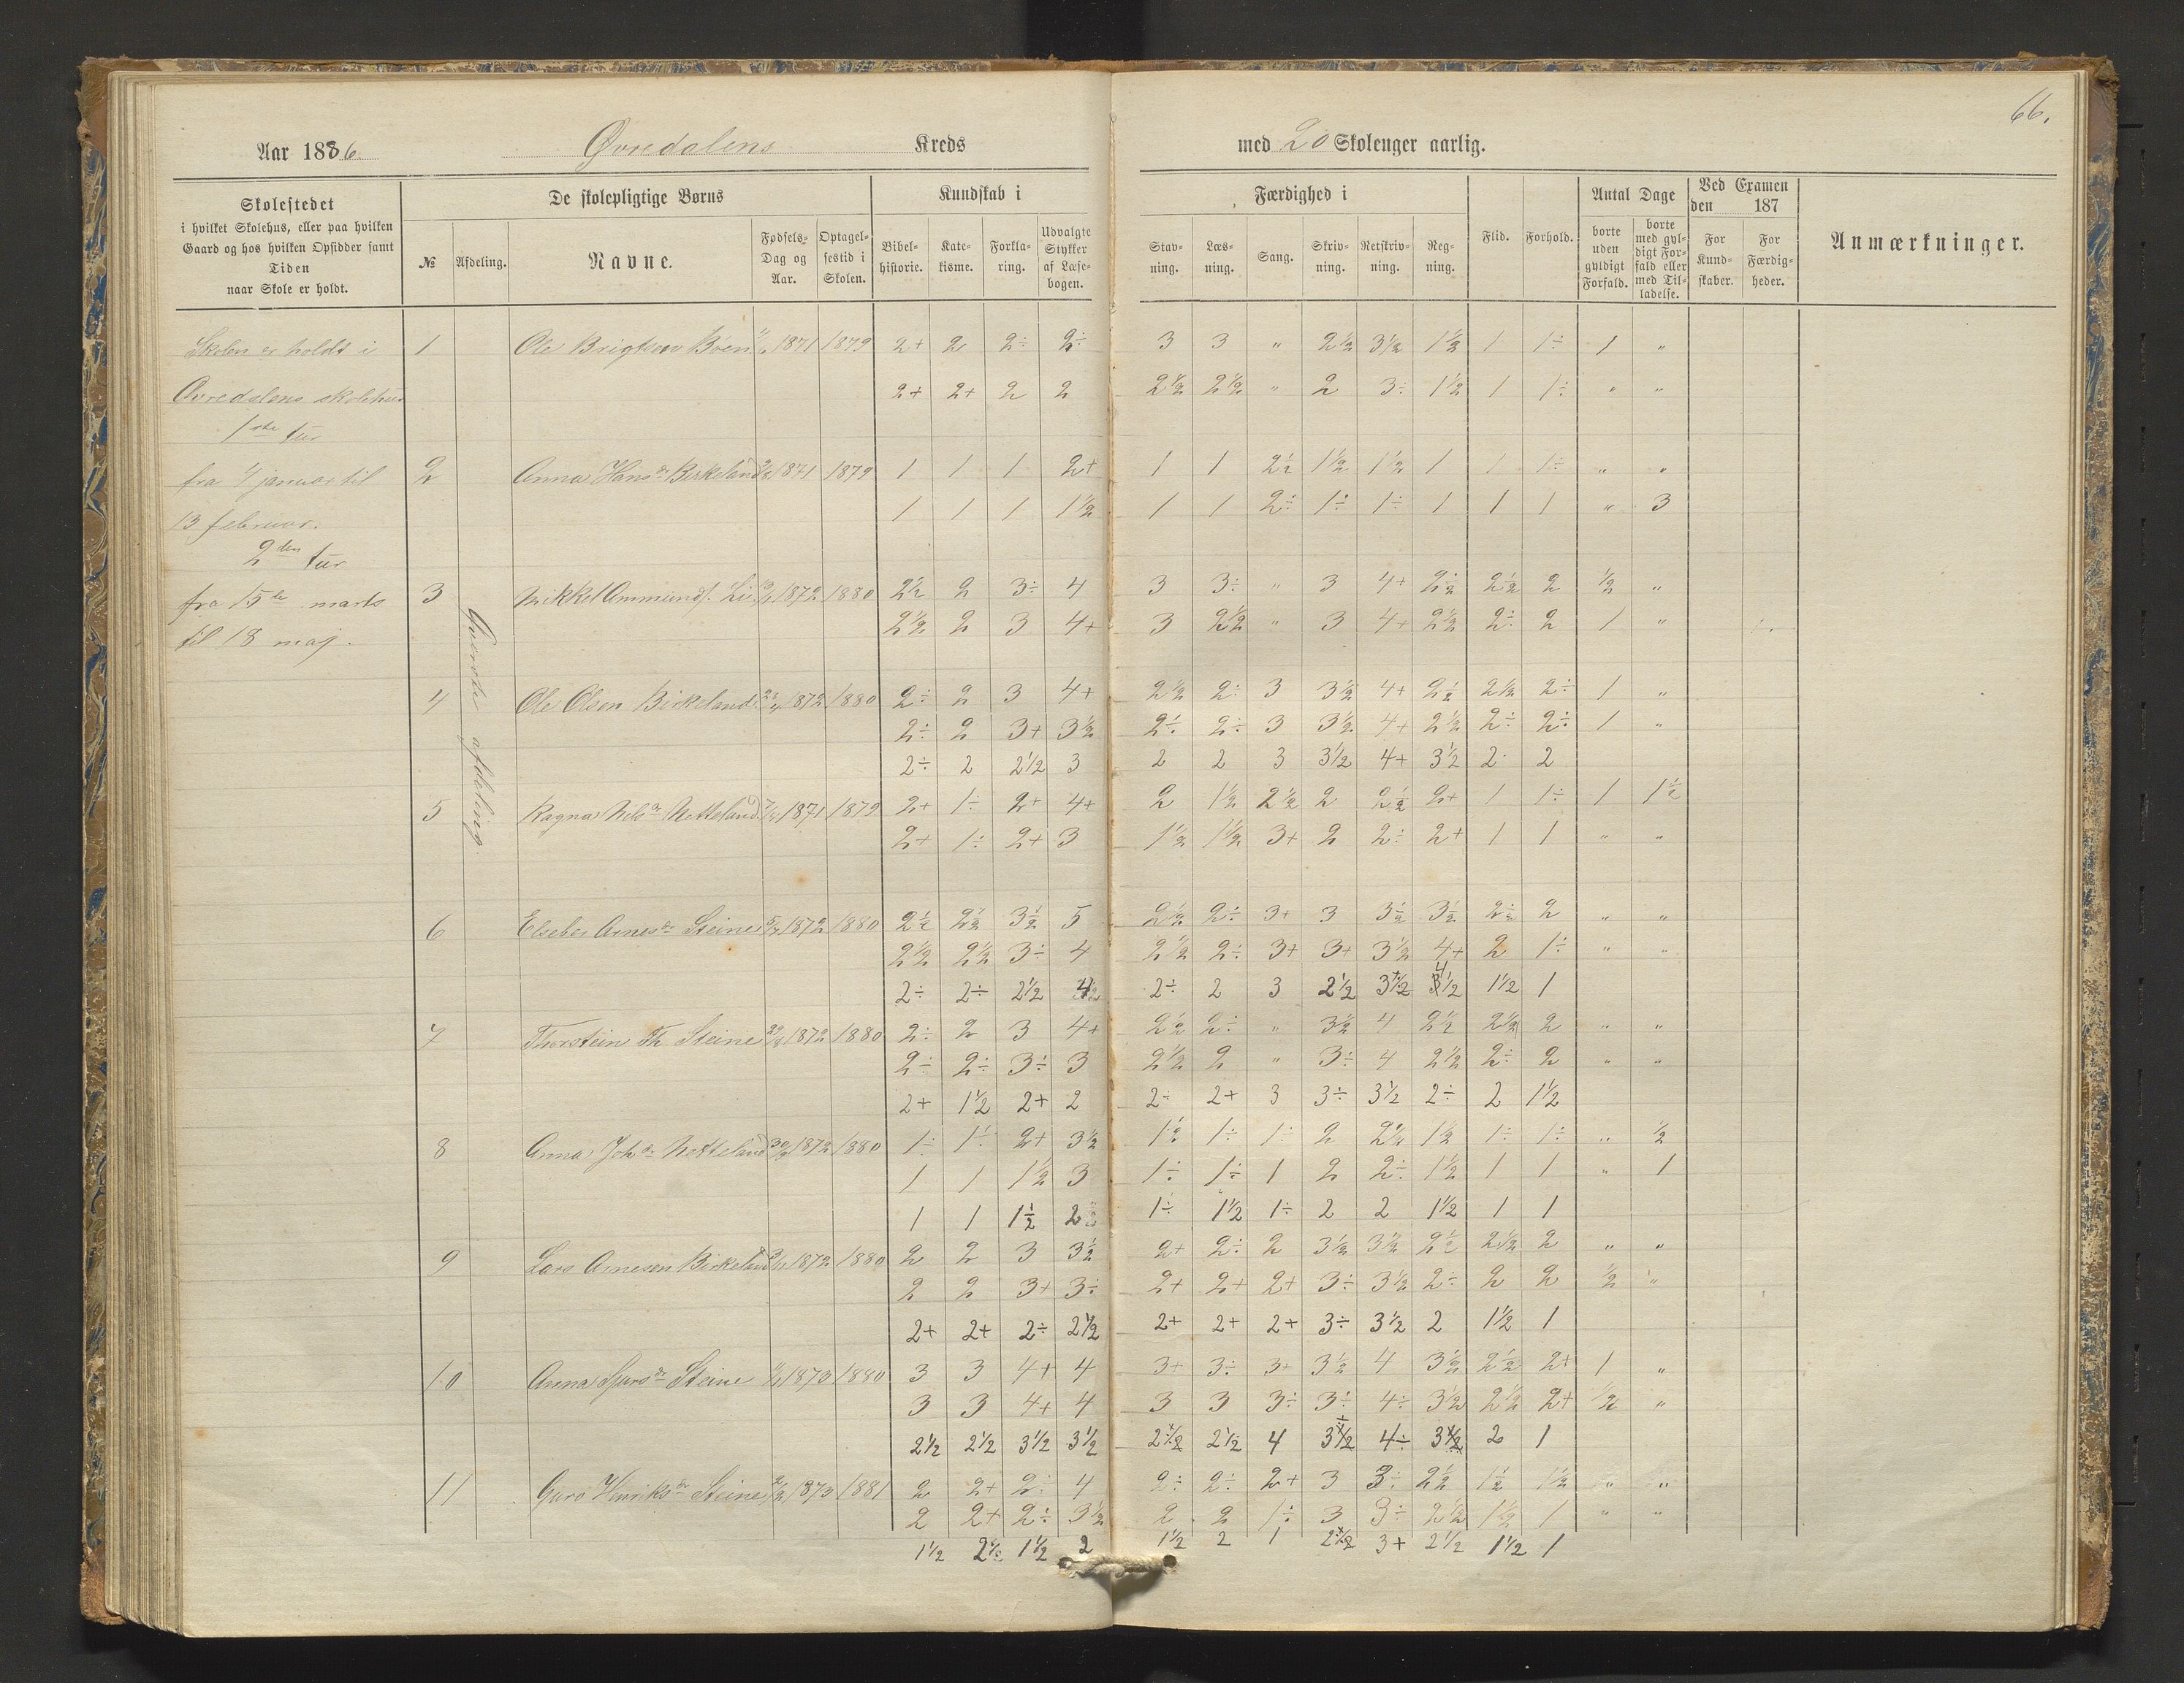 66.
Aar 1886. Øvredalens Kreds med 20 Skoleuger aarlig.
Skolestedet
i hvilket Skolehus, eller paa hvilken
Gaard og hos hvilken Opsidder samt
Tiden
naar Skole er holdt.
De skolepligtige Børns
№ Afdeling. Navne. Fødsels-Dag og Aar. Optagelsestid i Skolen.
Kundskab i
Bibelhistorie. Katekisme. Forklaring. Udvalgte Stykker af Læsebogen.
Færdighed i
Stavning. Læsning. Sang. Skrivning. Retskrivning. Regning.
Flid. Forhold.
Antal Dage
borte uden gyldigt Forfald. borte med gyldigt Forfald eller med Tilladelse.
Ved Examen den 187
For Kundskaber. For Færdigheder.
Anmærkninger.
Skolen er holdt i
Øvredalens skolehus
1ste tur
fra 4 januar til
13 februar.
2den tur
fra 15de marts
til 18 maj.
Øverste afdeling.
1 Ole Brigtsen Böen 1871 1879 2+ 2 2÷ 2÷ 3 3 " 2½ 3½ 1½ 1 1÷ 1 "
2+ 2+ 2 2 2½ 2½ " 2 3÷ 1½ 1 1÷ " "
2 Anna Hansdr Birkeland 1871 1879 1 1 1 2+ 1 1 2½ 1½ 1½ 1 1 1÷ " "
1 1 1 1½ 1 1 2÷ 1÷ 1÷ 1 1 1 " 3
3 Mikkel Ammunds. Li 1872 1880 2½ 2 3÷ 4 3 3÷ " 3 4+ 2½ 2½ 2 ½ "
2½ 2 3 4+ 3 2½ " 3 4+ 2½ 2÷ 2 1 "
4 Ole Olsen Birkeland 1872 1880 2÷ 2 3 4+ 2½ 2÷ 3 3½ 4+ 2½ 2½ 2÷ 1 "
2÷ 2 3+ 3½ 2÷ 2÷ 3 3½ 4+ 2½ 2÷ 2÷ 1 "
2÷ 2 2½ 3 2 2 3 3½ 4+ 3½ 2÷ 2
5 Ragna Nilsdr Netteland 1871 1879 2+ 1÷ 2+ 4+ 2 1½ 2½ 2 2½ 2+ 1 1÷ 1 1½
2+ 1÷ 2+ 3 1½ 1½ 3+ 2 2÷ 2+ 1 1 " "
6 Elseber Arnesdr Steine 1872 1880 2½ 2½ 3½ 5 2½ 2÷ 3+ 3 3½ 3½ 2½ 2 " "
2½ 2½ 3÷ 4 2½ 2÷ 3+ 3+ 3½ 4+ 2 1÷ " "
2÷ 2÷ 2½ 4 2÷ 2 3 2½ 3½ 4 1½ 1
7 Thorstein Th Steine 1872 1880 2÷ 2 3 4+ 2½ 2÷ " 3½ 4 2½ 2½ 2 " "
2÷ 2÷ 3÷ 3 2½ 2 " 3÷ 4 2½ 2÷ 2 " "
2+ 1½ 2+ 2 2÷ 2+ 3 3÷ 3½ 2÷ 2 1½
8 Anna Johdr Netteland 1872 1880 1÷ 1÷ 2+ 3½ 1÷ 1÷ 1÷ 2 2½ 1½ 1÷ 1÷ " ½
1 1 1½ 3 1÷ 1÷ 1 2 2÷ 1½ 1 1 " 1
1 1 1½ 2½ 1÷ 1½ 1÷ 2 2 1½ 1 1
9 Lars Arnesen Birkeland 1872 1880 2 2 3 3½ 2+ 2÷ 2 3½ 3½ 2½ 2½ 2 " "
2 2 3+ 3÷ 2+ 2+ 2+ 3÷ 3½ 2÷ 2 2 ½ "
2+ 2+ 2÷ 2½ 2+ 2+ 2+ 3÷ 3½ 2 1½ 1
10 Anna Sjursdr Steine 1873 1880 3 3 4+ 4 3+ 3÷ 3+ 3½ 4 3½ 2½ 2+ 1 "
3 3 4+ 4 3 3 3÷ 3÷ 4÷ 3½ 2½ 2+ ½ "
2½ 2½ 3½ 3½ 2½ 2½ 4 3+ 4÷ 3½ 2 1
11 Guro Henriksdr Steine 1873 1881 2 2+ 2÷ 4 2÷ 2÷ 2+ 3 3÷ 2½ 1½ 1½ " "
2 2+ 2÷ 3½ 2 2 1÷ 3 3÷ 2½ 1½ 1 " "
1½ 2½ 1½ 2 1½ 2 1 2½ 3+ 2½ 1½ 1